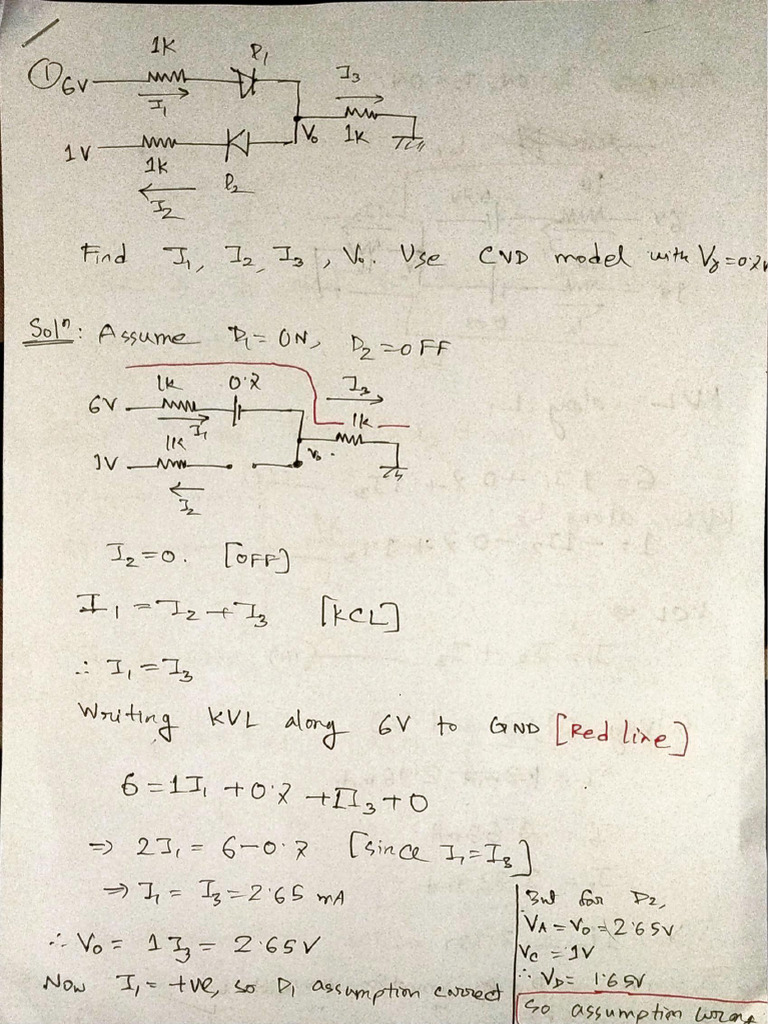 ①
1K
D₁
6V
I₁
I₃
V₀
1K
1V
1K
D₂
I₂
Find I₁, I₂, I₃, V₀. Use CVD model with Vγ=0.7V
Solⁿ: Assume D₁=ON, D₂=OFF
1K
0.7
I₃
6V
I₁
1K
1K
1V
V₀.
I₂
I₂=0. [OFF]
I₁=I₂+I₃ [KCL]
∴ I₁=I₃
Writing KVL along 6V to GND [Red line]
6=1I₁+0.7+1I₃+0
⇒ 2I₁=6-0.7 [since I₁=I₃]
⇒ I₁=I₃=2.65 mA
∴ V₀= 1I₃= 2.65V
Now I₁=+ve, so D₁ assumption correct
But for D₂,
VA=V₀=2.65V
VC=1V
∴ VD= 1.65V
So assumption wrong